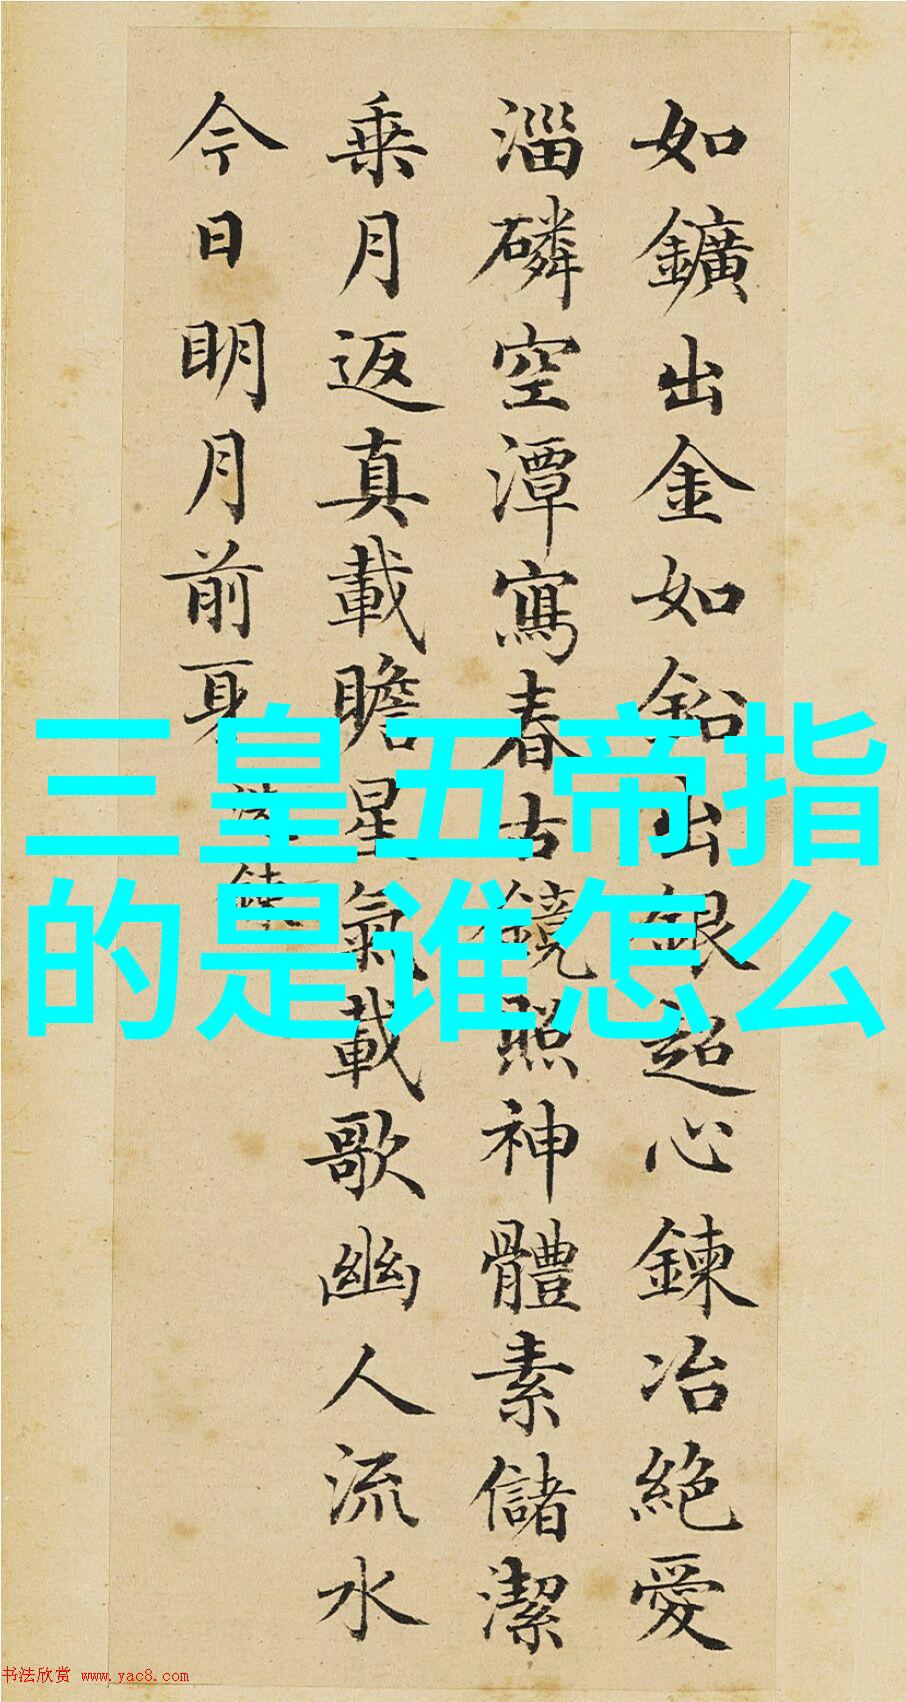 如鑛出金如鉛出銀超心鍊冶絕愛
淄磷空潭寫春古鏡照神體素儲潔
乘月返真載瞻星氣載歌幽人流水
今日明月前身
洗鍊
三皇五帝指
的是谁怎么
书法欣赏 www.yac8.com